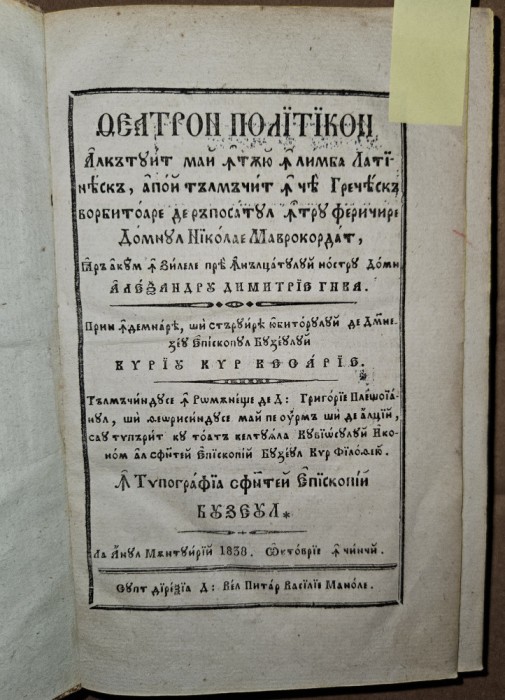 ѲЕАТРОН ПОЛЇТЇКОН,
Алкътуи́т май ꙟтѫю ꙟ лимба Латї-
нѣскъ, апо́й тълмъчи́т ꙟ чѣ Гречѣскъ
ворбитоаре де ръпоса́тул ꙟтру феричи́ре
До́мнул Нїко́лае Маврокорда́т,
І҆аръ аку́м ꙟ зилеле прѣ ꙟнълца́тулуй но́стру До́мн
АЛЕѮАНДРУ ДИМИТРЇЕ ГИКА.
При́н ꙟдемна́рѣ, ши стъруи́рѣ юбито́рулуй де Дм҃не-
зеу Епі́скопул Бузеулуй
КУРЇУ КУР КЕСА́РЇЕ.
Тълмъчи́ндусе ꙟ Ромѫнѣще де Д: Григо́рїе Плешоїа-
нул, ши ѳеѡрисиндусе май пе оурмъ ши де алцїй,
сау типъри́т ку то́атъ келтуѧла Кувїѡсулуй Іко-
но́м ал сфи́нтей Епі́скопїй Бузеул Кур Фїло́ѳею.
ꙟ Типогра́фїа сфи́нтей Епі́скопїй
БУЗЕУЛ*
Ла а́нул Мѫнтуи́рїй 1838. Ѻкто́врїе ꙟ чи́нчй.
Супт дїре́кцїа Д: Ве́л Пита́р Васі́лїе Мано́ле.